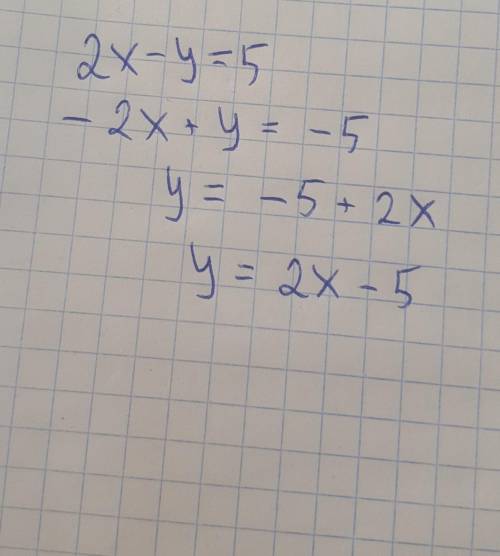 2x - y = 5
- 2x + y = - 5
y = - 5 + 2x
y = 2x - 5